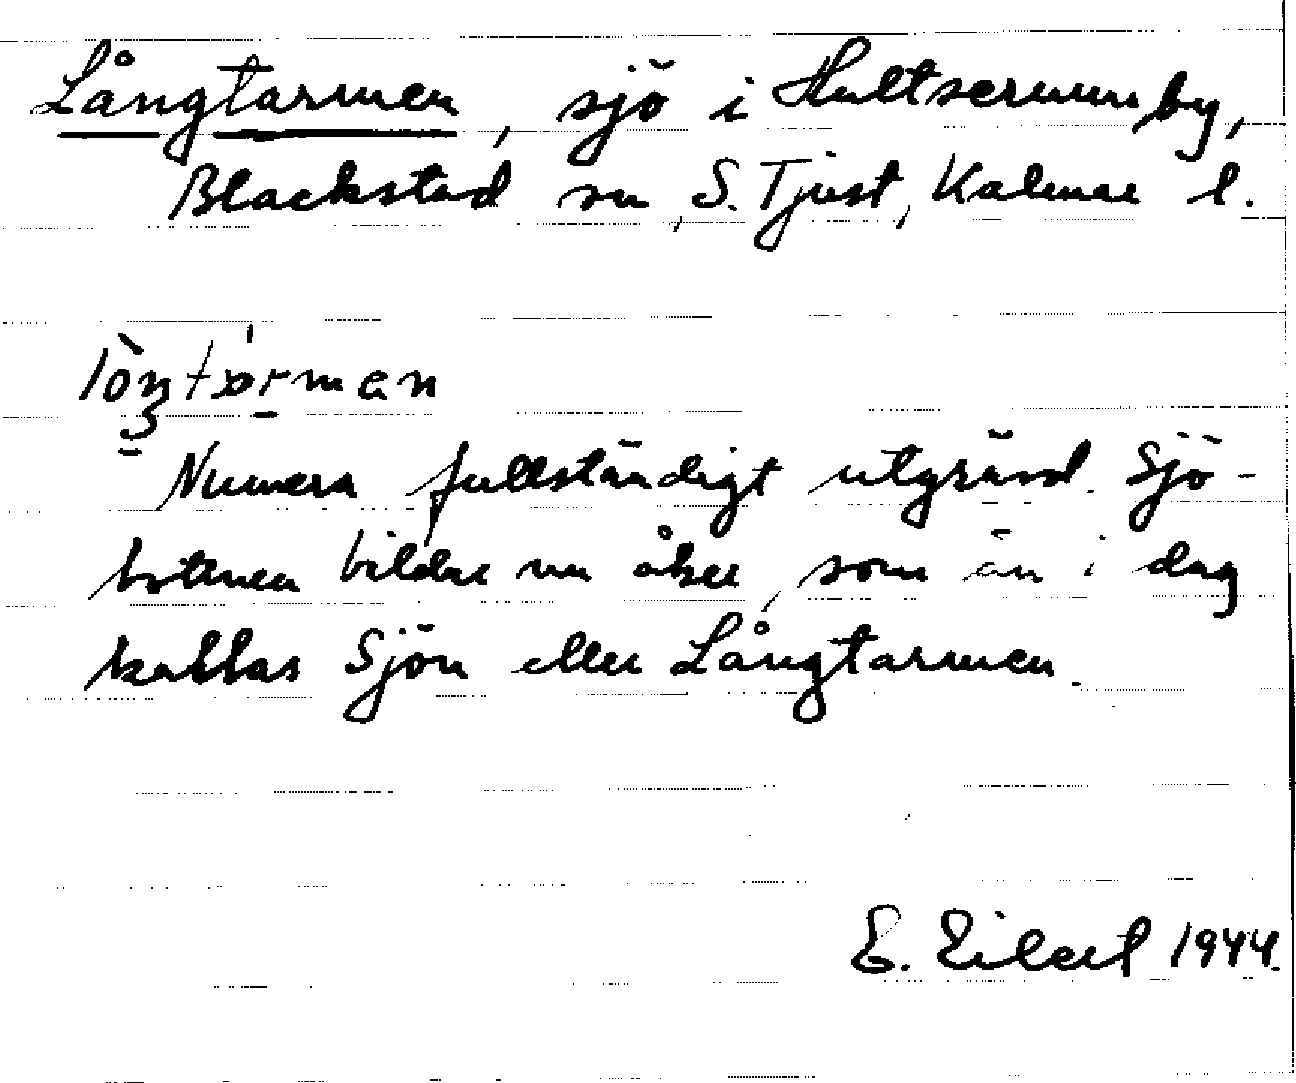 Långtarmen, sjö i Hultserum by,
Blackstad sn, S. Tjust, Kalmar l.
Numera fullständigt utgrävd. Sjö-
bottnen bildar nu åker, som än i dag
kallas Sjön eller Långtarmen.
E. Eilert 1944.